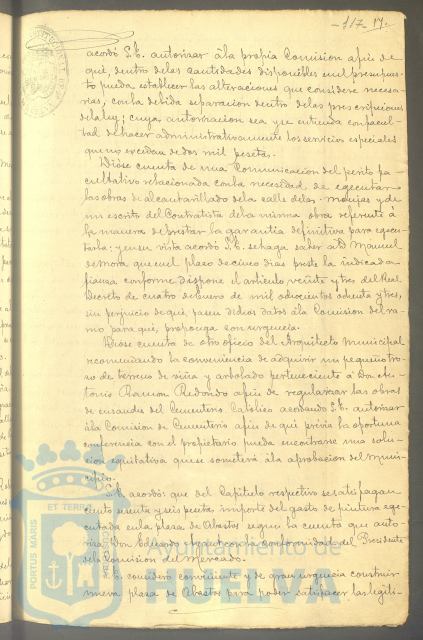 -117- 17.
acordó S.E. autorizar á la propia Comision afin de
que, dentro de las cantidades disponibles en el presupues-
to pueda establecer las alteraciones que considere necesa-
rias, con la debida separacion dentro de las prescripciones
de la ley; cuya autorizacion sea y se entienda con facul-
tad de hacer administrativamente los servicios especiales
que no excedan de dos mil pesetas.
Dióse cuenta de una Comunicacion del perito fa-
cultativo relacionada con la necesidad de egecutar
las obras de alcantarillado de la calle de las monjas y de
un escrito del Contratista de la misma obra referente á
la manera de prestar la garantia definitiva para egecu-
tarla; y en su vista acordó S.E. se haga saber á D. Manuel
de Mora que en el plazo de cinco dias preste la indicada
fianza conforme dispone el articulo veinte y tres del Real
Decreto de cuatro de Enero de mil ochocientos ochenta y tres,
sin perjuicio de que, pasen dichos datos á la Comision del ra-
mo para que, proponga con urgencia.
Dióse cuenta de otro oficio del Arquitecto Municipal
recomendando la conveniencia de adquirir un pequeño tro-
zo de terreno de viña y arbolado perteneciente á Don An-
tonio Ramon Redondo afin de regularizar las obras
de ensanche del Cementerio Católico acordando S.E. autorizar
á la Comision de Cementerio afin de que prévia la oportuna
conferencia con el propietario pueda encontrarse una solu-
cion equitativa que se someterá á la aprobacion del Muni-
cipio.
S.E. acordó: que del Capitulo respectivo se satisfagan
ciento y seis pesetas, importe del gasto de pintura ege-
cutada en la plaza de Abastos segun la cuenta que auto-
riza Don Eduardo con la conformidad del Presidente
de la Comision del Mercado.
S.E. consideró conveniente y de gran urgencia construir
nueva plaza de Abastos para poder satisfacer las legiti-
PORTUS MARIS
ET TERRAE
Ayuntamiento de
HUELVA